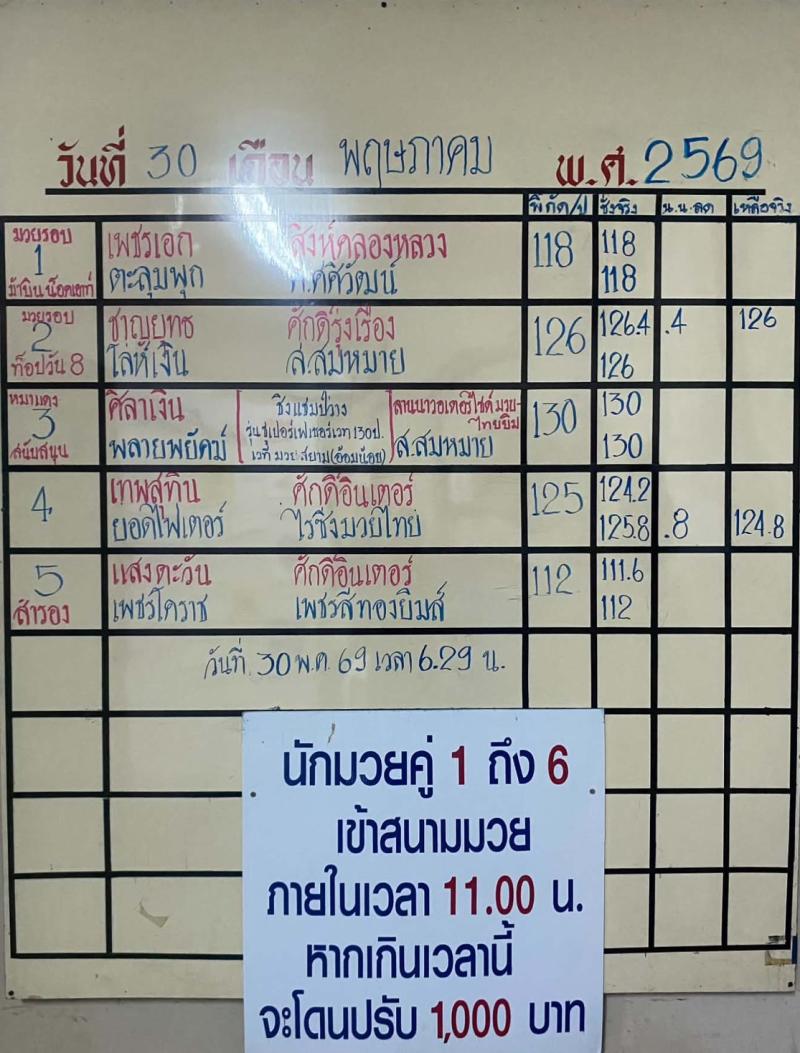 วันที่ 30 เดือน พฤษภาคม พ.ศ. 2569
พิกัด/ป ชั่งจริง น.น.ลด เหลือจริง
มวยรอบ 1 ม้าบินน็อคเอาท์
เพชรเอก สิงห์คลองหลวง 118 118
ตะลุมพุก ศศิวัฒน์ 118
มวยรอบ 2 ท็อปวัน 8
ชาญยุทธ ศักดิ์รุ่งเรือง 126 126.4 .4 126
โล่ห์เงิน ส.สมหมาย 126
หมาแดง 3 สนับสนุน
ศิลาเงิน ลานนาวอเตอร์ไซด์มวยไทยยิม 130 130
ชิงแชมป์ว่าง
รุ่นซูเปอร์เฟเธอร์เวท 130 ป.
เวทีมวยสยาม(อ้อมน้อย)
พลายพยัคฆ์ ส.สมหมาย 130
4 เทพสุทิน ศักดิ์อินเตอร์ 125 124.2
ยอดไฟเตอร์ ไรซิ่งมวยไทย 125.8 .8 124.8
5 สำรอง
แสงตะวัน ศักดิ์อินเตอร์ 112 111.6
เพชรโคราช เพชรสีทองยิมส์ 112
วันที่ 30 พ.ค 69 เวลา 6.29 น.
นักมวยคู่ 1 ถึง 6
เข้าสนามมวย
ภายในเวลา 11.00 น.
หากเกินเวลานี้
จะโดนปรับ 1,000 บาท